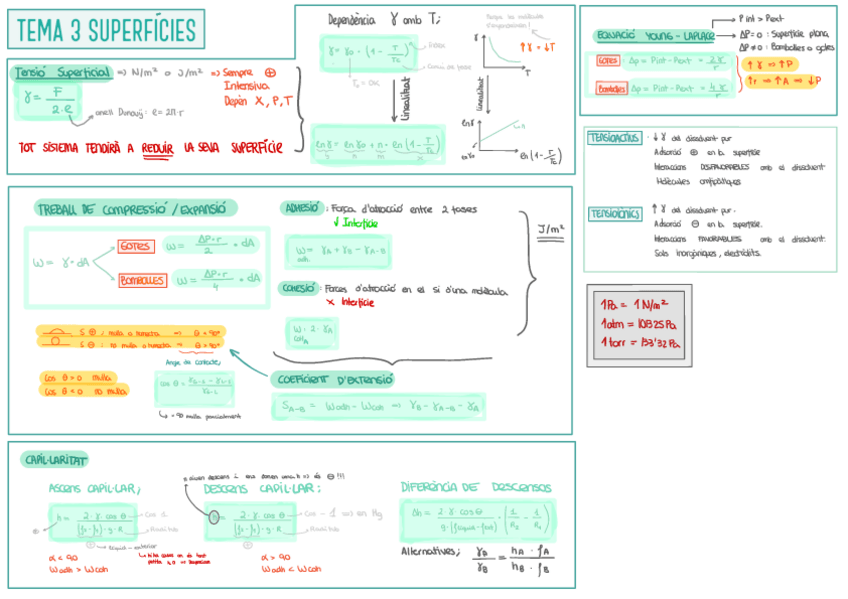 TEMA 3 SUPERFÍCIES
Tensió Superficial => N/m² o J/m² => Sempre ⊕
Intensiva
Depèn X, P, T
γ = F / 2·e
anell Dunouij: e = 2π·r
TOT SISTEMA TENDIRÀ A REDUIR LA SEVA SUPERFÍCIE
Dependència γ amb T;
γ = γ₀ · (1 - T/Tc)ⁿ
T₀ = 0K
linealitzat
ln γ = ln γ₀ + n · ln (1 - T/Tc)
y n x
γ
↑γ = ↓T
T
linealitzat
ln γ
n
ln γ₀
ln (1 - T/Tc)
EQUACIÓ YOUNG - LAPLACE
P int > Pext
ΔP = 0 : Superfície plana
ΔP ≠ 0 : Bombolles o gotes
GOTES: Δp = Pint - Pext = 2γ / r
Bombolles: Δp = Pint - Pext = 4γ / r
↑γ => ↑P
↑r => ↑A => ↓P
TENSIOACTIUS : ↓ γ del dissolvent pur
Adsorció ⊕ en la superfície
Interaccions DESFAVORABLES amb el dissolvent
Molècules amfipàtiques
TENSIOIÒNICS : ↑ γ del dissolvent pur.
Adsorció ⊖ en la superfície.
Interaccions FAVORABLES amb el dissolvent.
Sals inorgàniques, electròlits.
1Pa = 1 N/m²
1atm = 101325Pa
1torr = 133'32Pa
TREBALL DE COMPRESSIÓ / EXPANSIÓ
W = γ · dA
GOTES W = ΔP·r / 2 · dA
BOMBOLLES W = ΔP·r / 4 · dA
ADHESIÓ : Força d'atracció entre 2 fases
✓ Interfície
W adh = γA + γB - γA-B
COHESIÓ : Forces d'atracció en el si d'una molècula
× Interfície
W coh A = 2 · γA
J/m²
S ⊕ : mulla o humecta => θ < 90°
S ⊖ : no mulla o humecta => θ > 90°
Angle de contacte;
cos θ > 0 mulla
cos θ < 0 no mulla
-90 mulla parcialment
COEFICIENT D'EXTENSIÓ
S A-B = Wadh - Wcoh => γB - γA-B - γA
CAPIL·LARITAT
ASCENS CAPIL·LAR;
h = 2 · γ · cos θ / (ρ₁ - ρ₂) · g · R
Cos 1
liquid - exterior
α < 90
Wadh > Wcoh
DESCENS CAPIL·LAR:
h = 2 · γ · cos θ / (ρ₁ - ρ₂) · g · R
Cos - 1 cas en Hg
α > 90
Wadh < Wcoh
DIFERÈNCIA DE DESCENSOS
Δh = 2 · γ · cos θ / g · (ρliquid - ρgas) · (1/R₂ - 1/R₁)
Alternatives; γA / γB = hA · ρA / hB · ρB